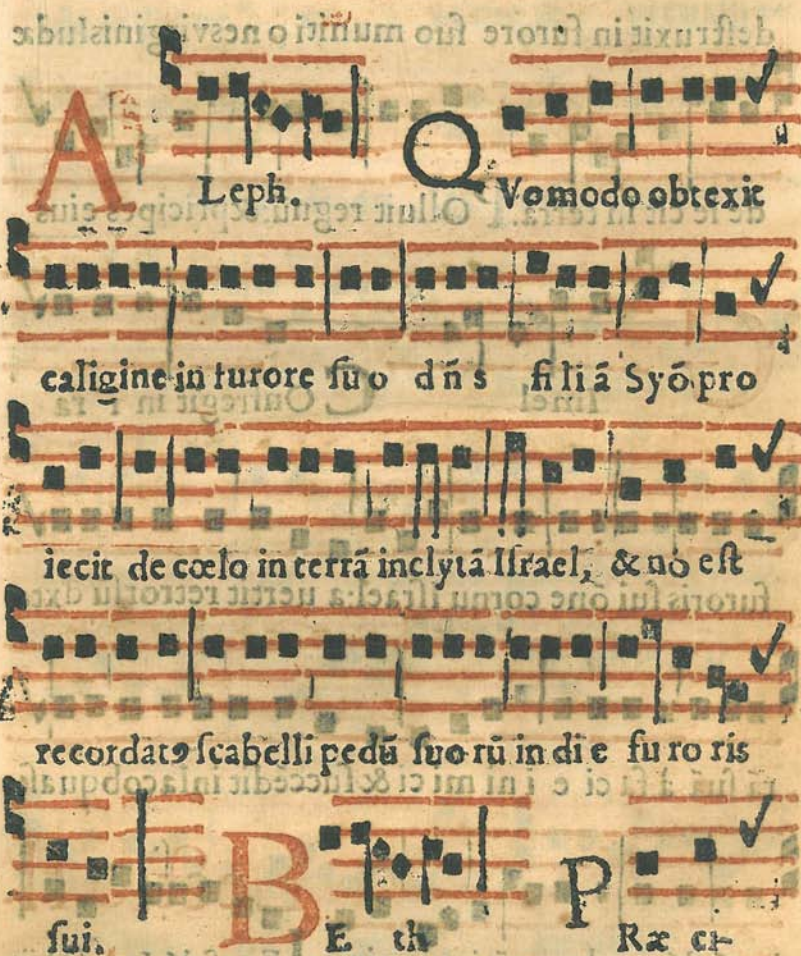 ALeph. QVomodo obtexit
caligine in furore ſuo dn̄s filiā Syō pro
iecit de cœlo in terrā inclytā Iſrael, & nō eſt
recordatꝰ ſcabelli pedū ſuorū in die furoris
ſui. BEth PRæ ci-